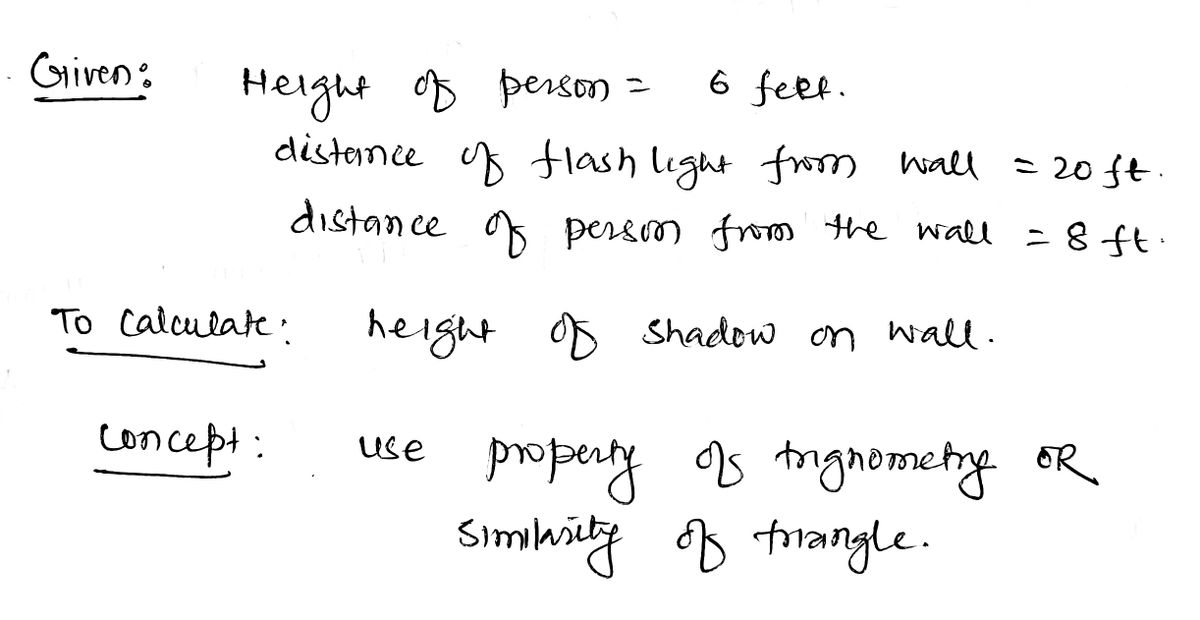 Given: Height of person = 6 feet.
distance of flash light from wall = 20 ft.
distance of person from the wall = 8 ft.
To Calculate: height of shadow on wall.
Concept: use property of trignometry OR
Similarity of triangle.